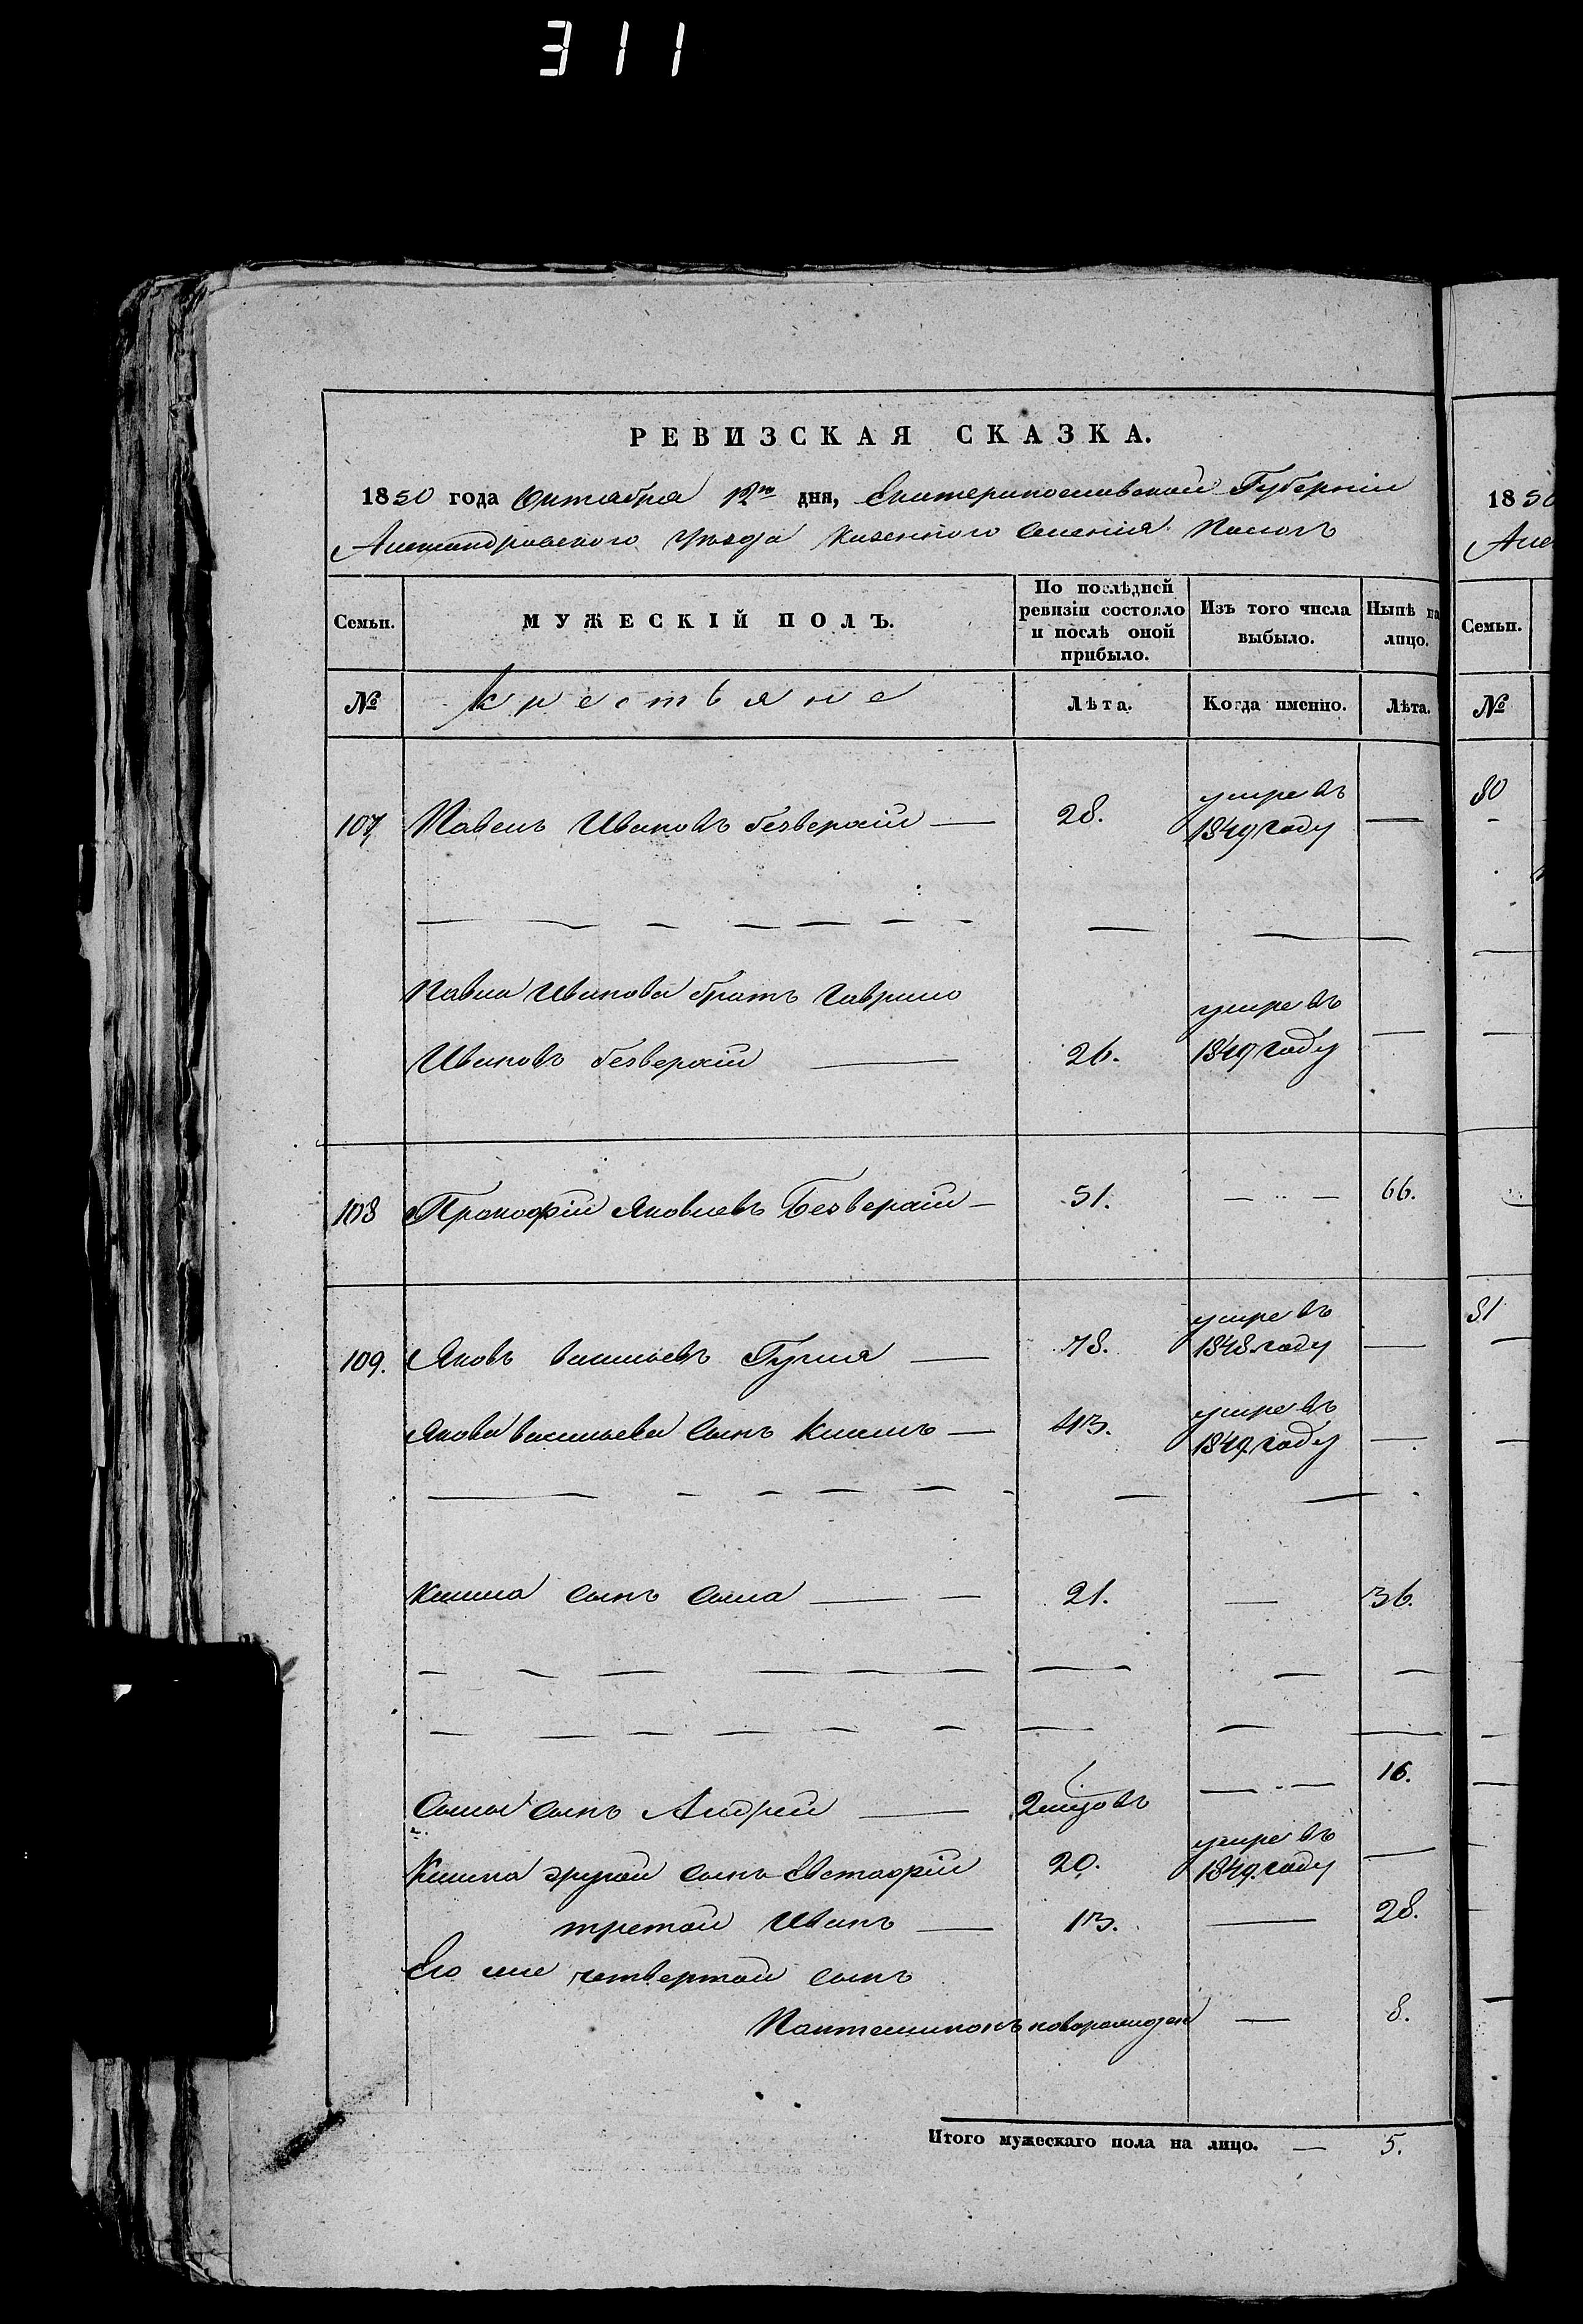 311
РЕВИЗСКАЯ СКАЗКА.
1850 года Октября 12го дня, Екатеринославской Губернiи
Александровского уѣзда казенного селенiя Пологъ
Семьи. МУЖЕСКІЙ ПОЛЪ. По послѣдней ревизіи состояло и послѣ оной прибыло. Изъ того числа выбыло. Нынѣ на лицо.
№ крестьяне Лѣта. Когда именно. Лѣта.
107 Павелъ Ивановъ безверхiй — 28. умре въ 1849 году —
Павла Иванова братъ Гаврило
Ивановъ безверхiй — 26. умре въ 1849 году —
108 Прокофiй Яковлевъ Безверхiй — 51. — 66.
109. Яковъ васильевъ Гуля — 78. умре въ 1848. году —
Якова васильева сынъ климъ — 43. умре въ 1849. году —
Клима сынъ сала — 21. — 36.
сынъ Андрей — 2 мцовъ — 16.
Клима другой сынъ Евстафiй 20. умре въ 1849. году —
третой Иванъ — 13. — 28.
Его же четвертой сынъ
Пантелимонъ новорожден — 8.
Итого мужескаго пола на лицо. — 5.
1850
Але
Семьи.
№
80
81